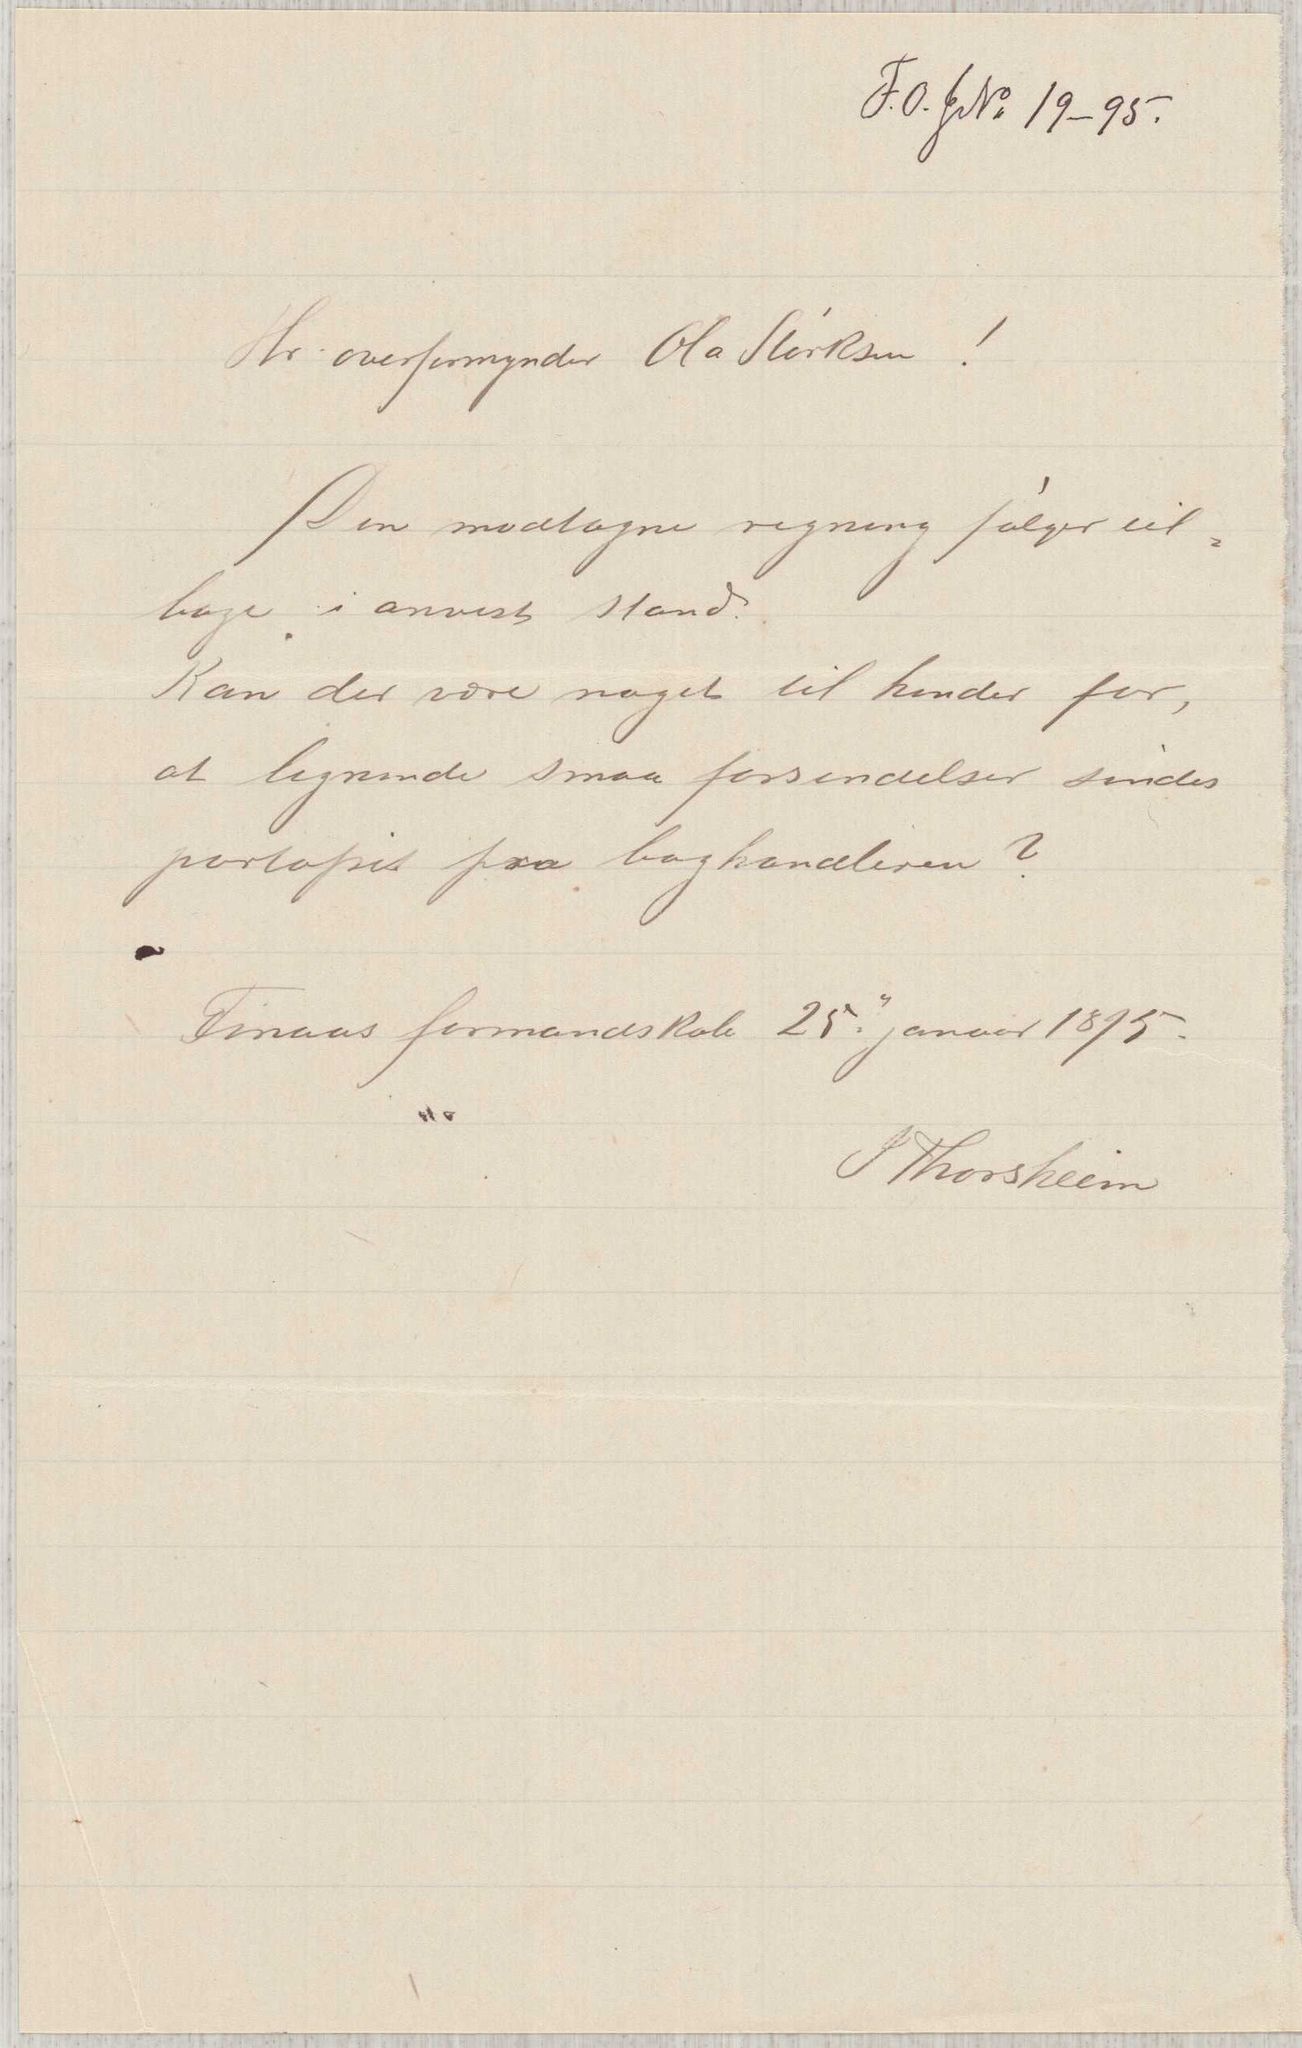 F.O. JNo. 19-95.
Hr. overformynder Ola Størksen !
Den modtagne regning følger til-
bage i anvist stand.
Kan der være noget til hinder for,
at lignende smaa forsendelser sendes
portofrit fra boghandleren ?
Finaas formandskab 25." januar 1895.
J Thorsheim